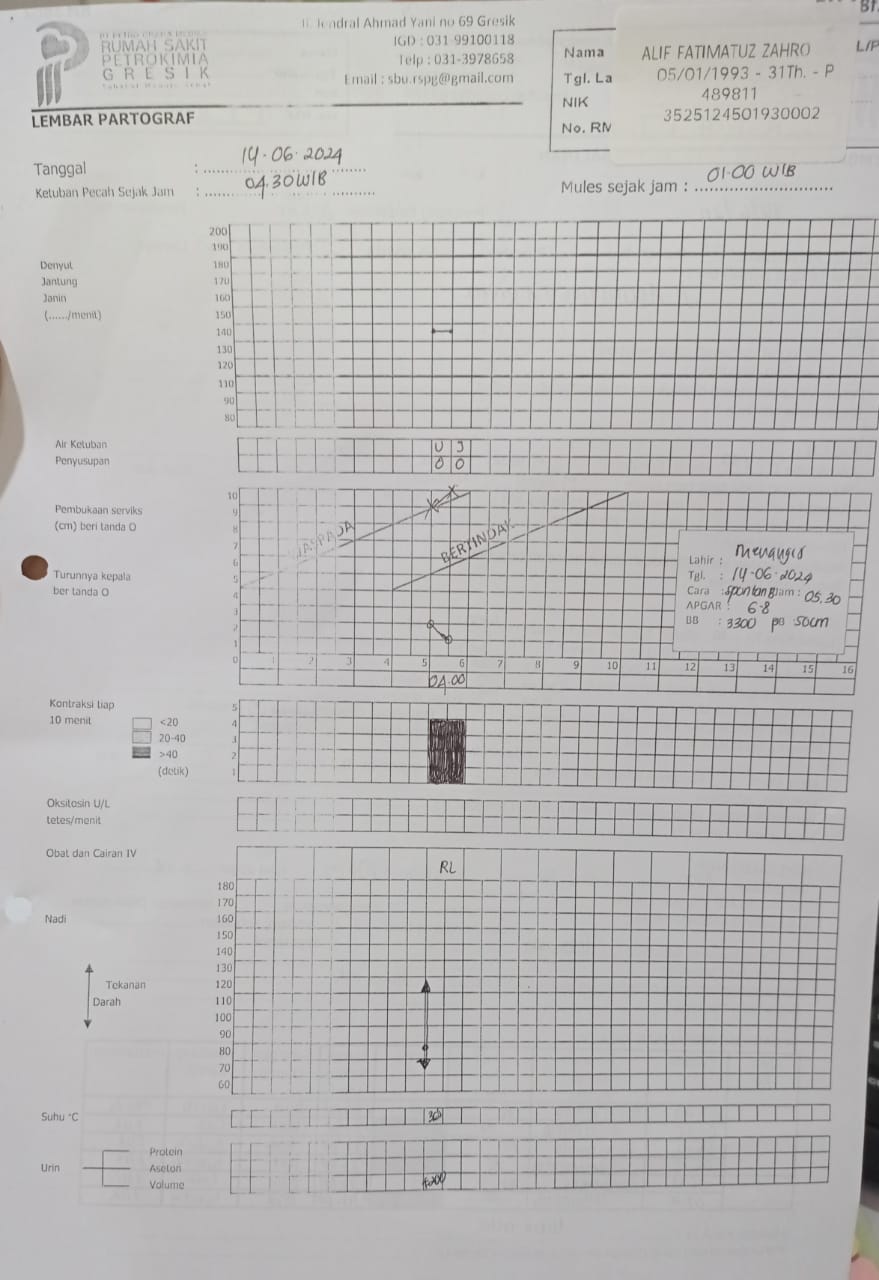 RUMAH SAKIT
PETROKIMIA
GRESIK
Jl. Jendral Ahmad Yani no 69 Gresik
IGD : 031 99100118
Telp : 031-3978658
Email : sbu.rspg@gmail.com
Nama
Tgl. La
NIK
No. RM
ALIF FATIMATUZ ZAHRO
05/01/1993 - 31Th. - P
489811
3525124501930002
L/P
LEMBAR PARTOGRAF
Tanggal : 14-06-2024
Ketuban Pecah Sejak Jam : 04.30 WIB
Mules sejak jam : 01.00 WIB
Denyut
Jantung
Janin
(....../menit)
200
190
180
170
160
150
140
130
120
110
90
80
Air Ketuban U J
Penyusupan 0 0
Pembukaan serviks
(cm) beri tanda O
Turunnya kepala
ber tanda O
10
9
8
7
6
5
4
3
2
1
0 1 2 3 4 5 6 7 8 9 10 11 12 13 14 15 16
WASPADA
BERTINDAK
04.00
Lahir : Menangis
Tgl. : 14-06-2024
Cara : spontan Jam : 05.30
APGAR : 6-8
BB : 3300 PB 50cm
Kontraksi tiap
10 menit
<20
20-40
>40
(detik)
5
4
3
2
1
Oksitosin U/L
tetes/menit
Obat dan Cairan IV
RL
Nadi
Tekanan
Darah
180
170
160
150
140
130
120
110
100
90
80
70
60
Suhu °C
Urin
Protein
Aseton
Volume